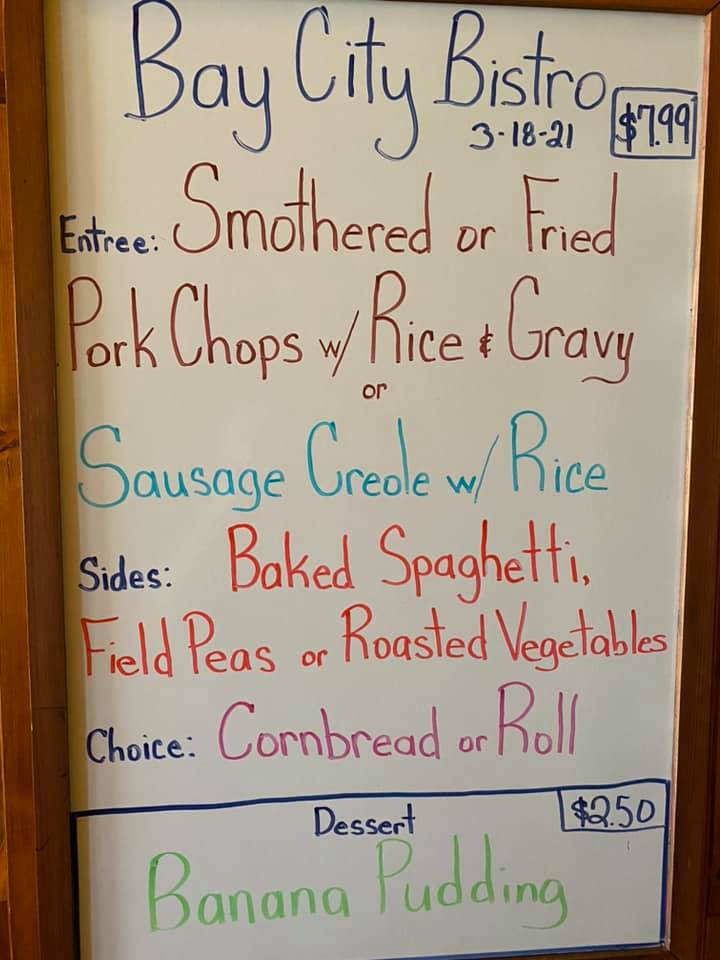 Bay City Bistro
3-18-21 $7.99
Entree: Smothered or Fried
Pork Chops w/ Rice & Gravy
or
Sausage Creole w/ Rice
Sides: Baked Spaghetti,
Field Peas or Roasted Vegetables
Choice: Cornbread or Roll
Dessert $2.50
Banana Pudding